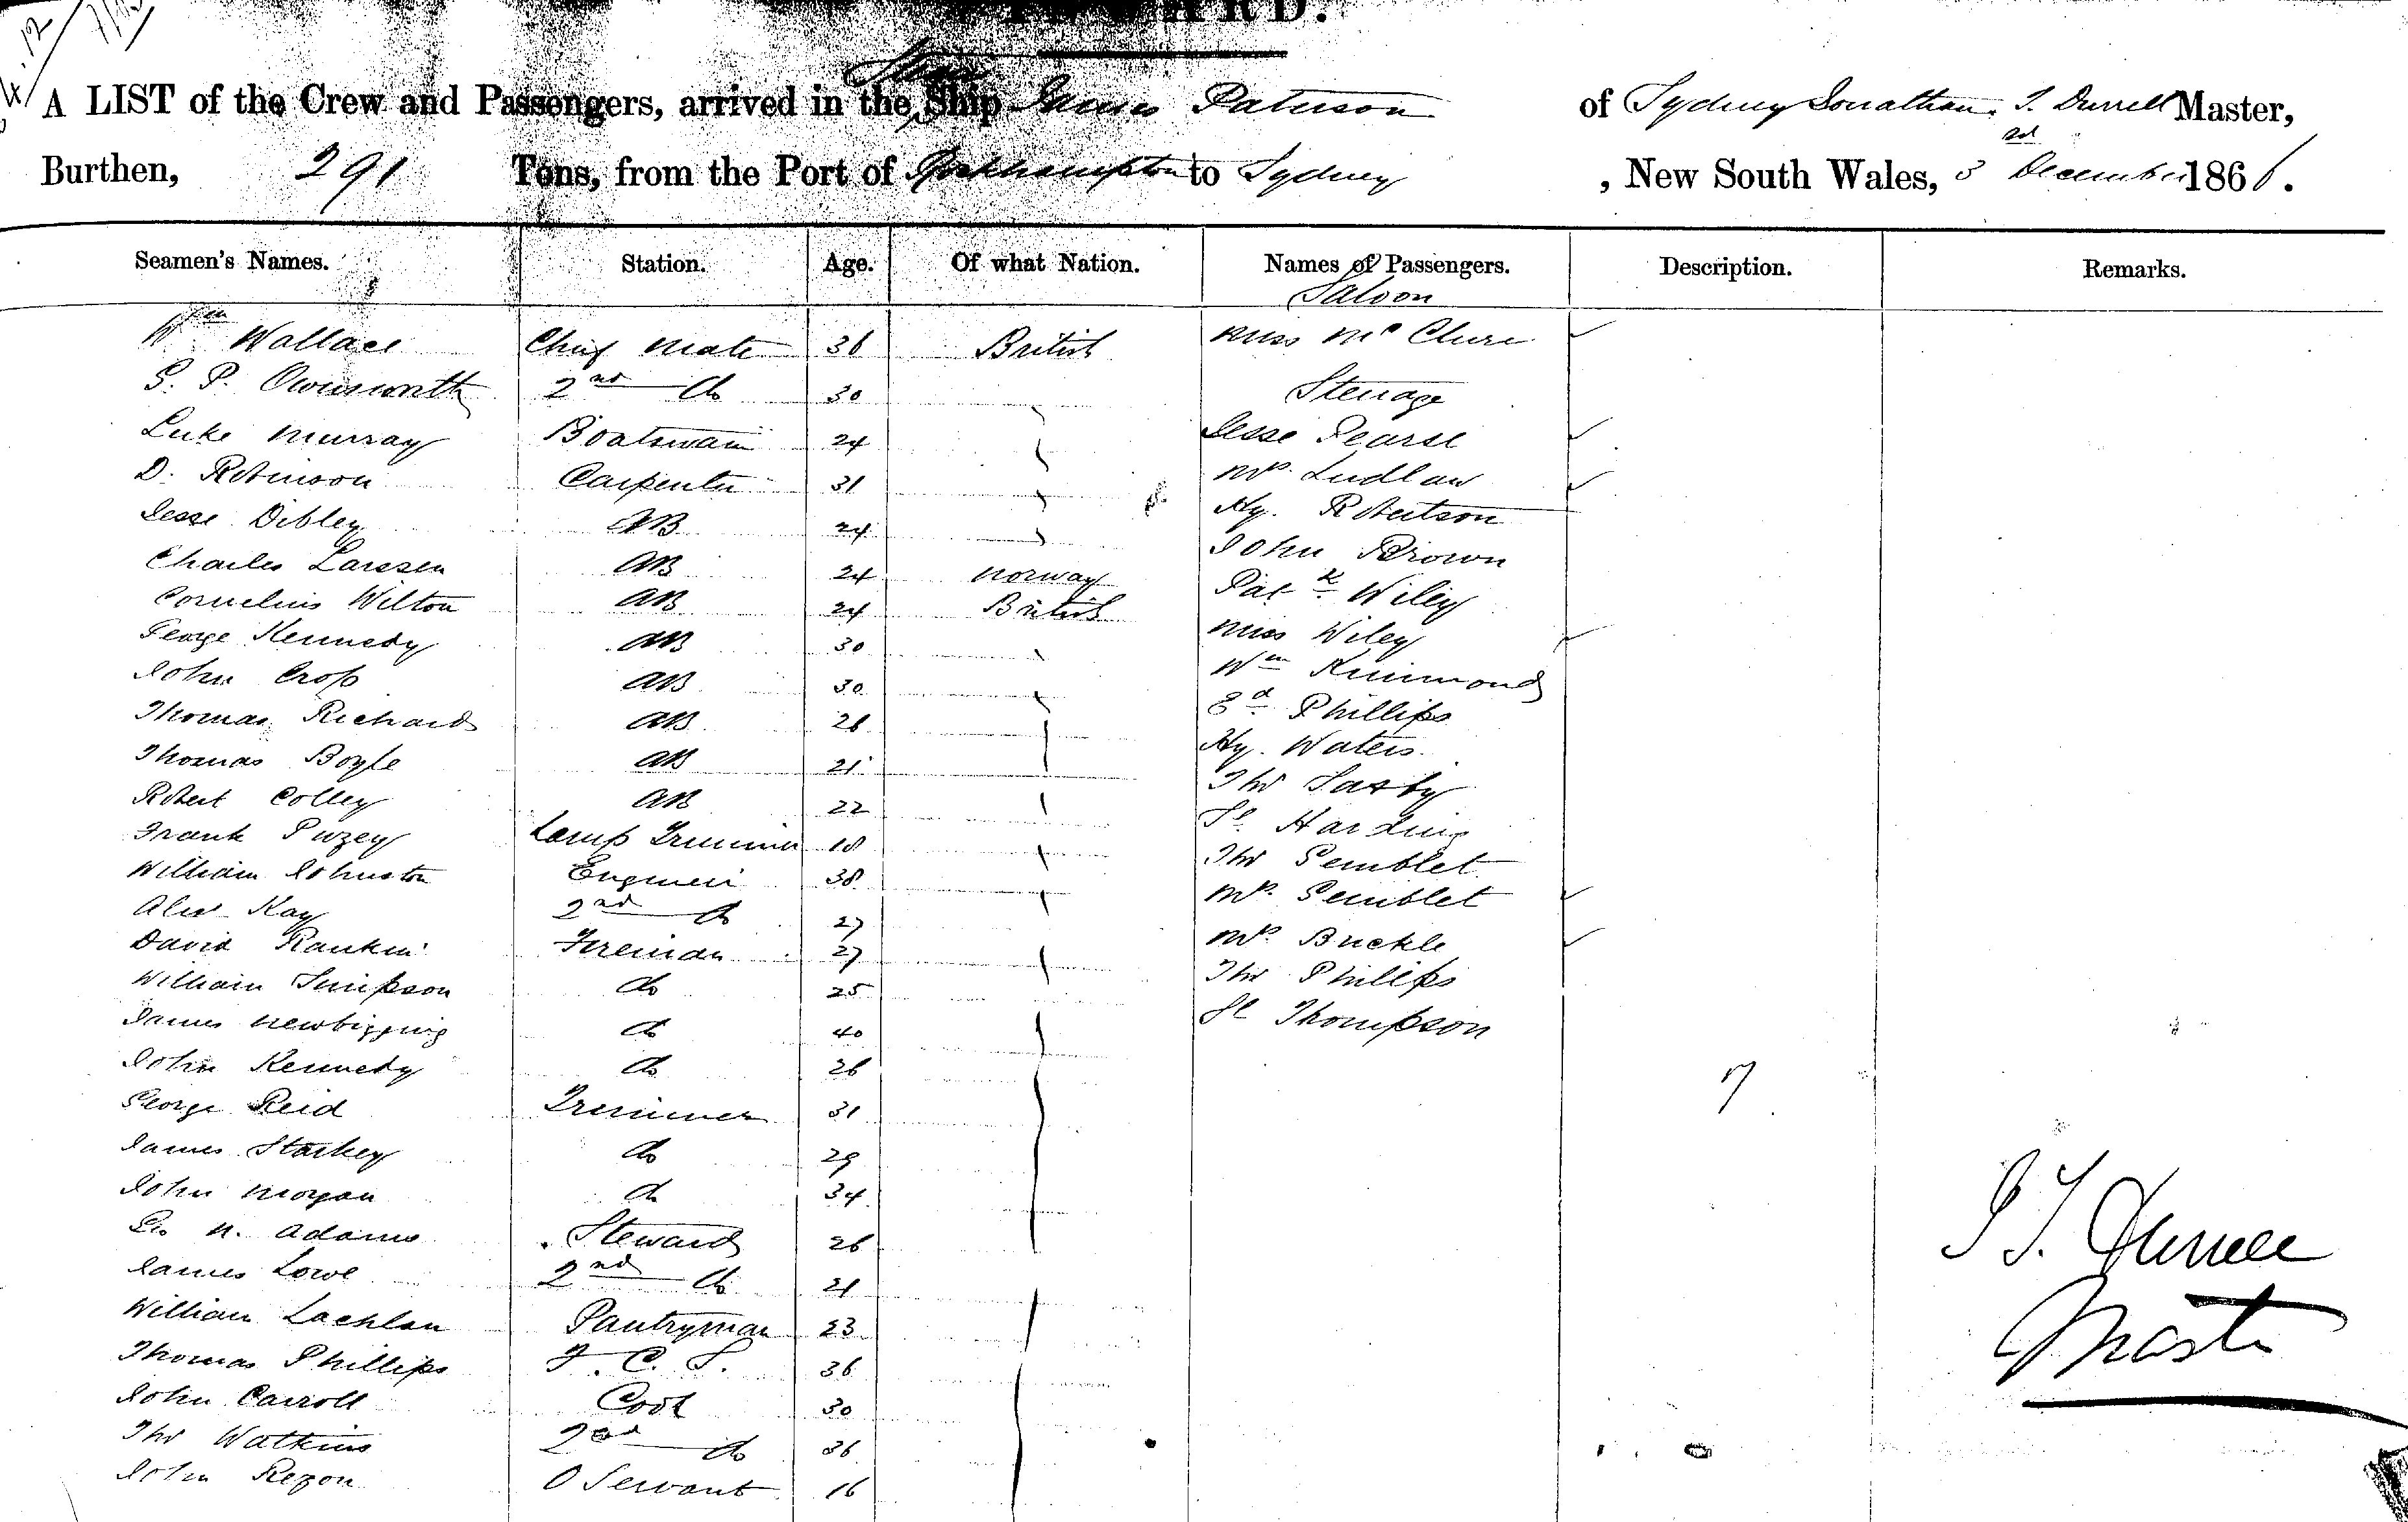 INWARD.
A LIST of the Crew and Passengers, arrived in the Steam Ship James Paterson of Sydney Jonathan T. Durrell Master,
Burthen, 291 Tons, from the Port of Rockhampton to Sydney, New South Wales, 3rd December 1866.
Seamen's Names. Station. Age. Of what Nation. Names of Passengers. Description. Remarks.
Saloon
Wm Wallace Chief Mate 36 British Miss McClure
G. P. Ownsworth 2nd do 30 Steerage
Luke Murray Boatswain 24 Jesse Pearse
D. Robinson Carpenter 31 Mrs. Ludlaw
Jesse Dibley AB 24 Hy. Robertson
John Brown
Charles Larssen AB 24 Norway Patk Wiley
Cornelius Wilton AB 24 British Miss Wiley
George Kennedy AB 30 Wm Kinimond
John Cross AB 30 Ed Phillips
Thomas Richards AB 26 Hy. Waters
Thomas Boyle AB 21 Thos Saxby
Robert Colley AB 22 Harding
Frank Puzey Lamp Trimmer 18 Thos Semblet
William Johnston Engineer 38 Mrs. Semblet
Alex Kay 2nd do 27 Mrs. Buckle
David Rankin Fireman 27 Thos Phillips
William Simpson do 25 Thompson
James Newbigging do 40
John Kennedy do 26
George Reid Trimmer 31 7
James Starkey do 29
John Morgan do 34
Geo N. Adams Steward 26
James Lowe 2nd do 21
William Lachlan Pantryman 23
Thomas Phillips F. C. S. 36
John Carroll Cook 30
Thos Watkins 2nd do 36
John Rezon O Servant 16
J T. Durrell
Master